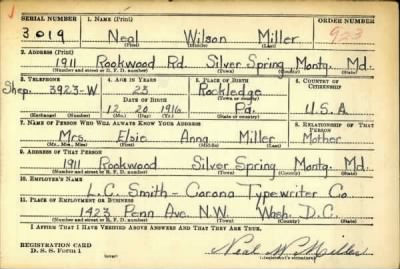 SERIAL NUMBER 1. NAME (Print) ORDER NUMBER
3019 Neal Wilson Miller 923
(First) (Middle) (Last)
2. ADDRESS (Print)
1911 Rookwood Rd. Silver Spring Montg. Md.
(Number and street or R. F. D. number) (Town) (County) (State)
3. TELEPHONE 4. AGE IN YEARS 5. PLACE OF BIRTH 6. COUNTRY OF CITIZENSHIP
Shep. 3923-W 23 Rockledge
DATE OF BIRTH (Town or county)
12 20 1916 Pa. U.S.A.
(Exchange) (Number) (Mo.) (Day) (Yr.) (State or country)
7. NAME OF PERSON WHO WILL ALWAYS KNOW YOUR ADDRESS 8. RELATIONSHIP OF THAT PERSON
Mrs. Elsie Anna Miller Mother
(Mr., Mrs., Miss) (First) (Middle) (Last)
9. ADDRESS OF THAT PERSON
1911 Rookwood Silver Spring Montg. Md.
(Number and street or R. F. D. number) (Town) (County) (State)
10. EMPLOYER'S NAME
L.C. Smith - Corona Typewriter Co
11. PLACE OF EMPLOYMENT OR BUSINESS
1423 Penn Ave. N.W. Wash. D.C.
(Number and street or R. F. D. number) (Town) (County) (State)
I AFFIRM THAT I HAVE VERIFIED ABOVE ANSWERS AND THAT THEY ARE TRUE.
REGISTRATION CARD
D. S. S. Form 1 Neal W. Miller
(Registrant's signature)